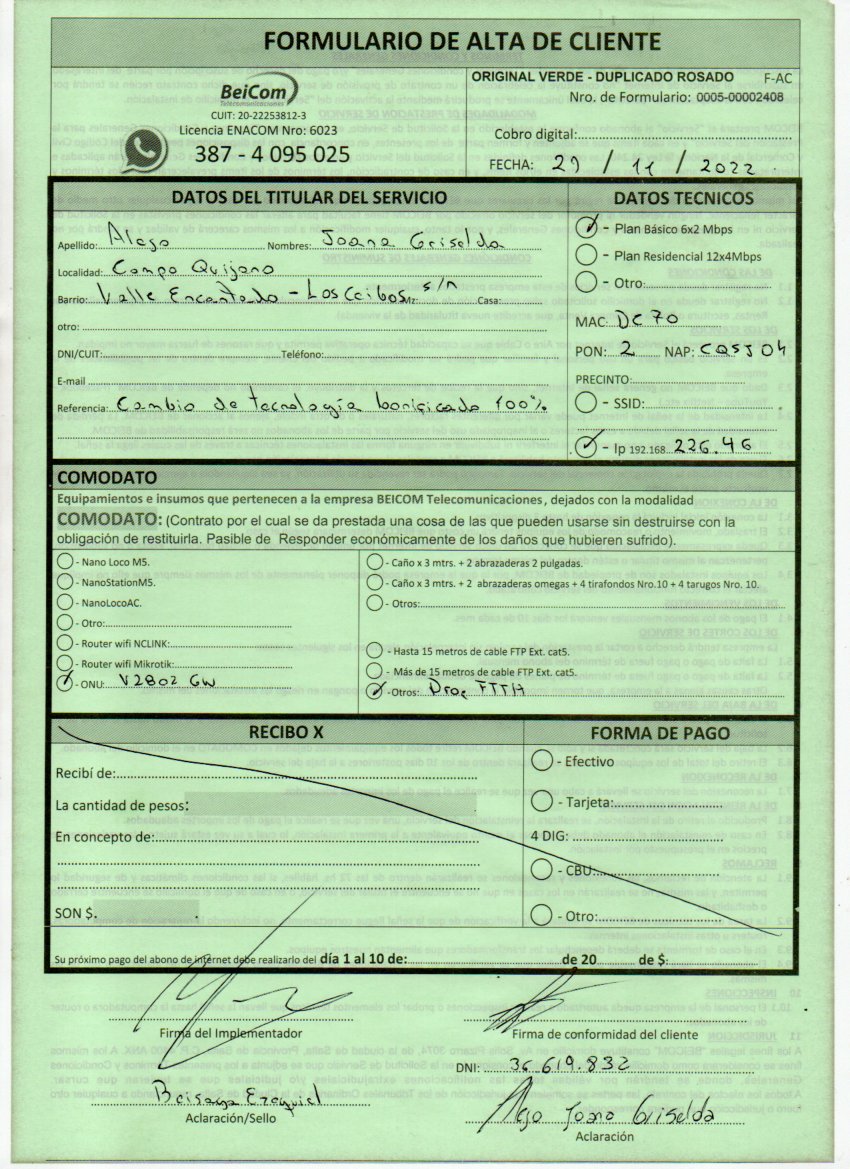 FORMULARIO DE ALTA DE CLIENTE
BeiCom
Telecomunicaciones
CUIT: 20-22253812-3
Licencia ENACOM Nro: 6023
387 - 4 095 025
ORIGINAL VERDE - DUPLICADO ROSADO F-AC
Nro. de Formulario: 0005-00002408
Cobro digital:
FECHA: 29 / 11 / 2022
DATOS DEL TITULAR DEL SERVICIO
Apellido: Alejo Nombres: Joana Griselda
Localidad: Campo Quijano
Barrio: Valle Encantado - Los Ceibos Mz: s/n Casa:
otro:
DNI/CUIT: Teléfono:
E-mail
Referencia: Cambio de tecnología bonificado 100%
DATOS TECNICOS
- Plan Básico 6x2 Mbps
- Plan Residencial 12x4Mbps
- Otro:
MAC: DC70
PON: 2 NAP: CQSJ04
PRECINTO:
- SSID:
- Ip 192.168. 226.46
COMODATO
Equipamientos e insumos que pertenecen a la empresa BEICOM Telecomunicaciones, dejados con la modalidad
COMODATO: (Contrato por el cual se da prestada una cosa de las que pueden usarse sin destruirse con la
obligación de restituirla. Pasible de Responder económicamente de los daños que hubieren sufrido).
- Nano Loco M5.
- NanoStationM5.
- NanoLocoAC.
- Otro:
- Router wifi NCLINK:
- Router wifi Mikrotik:
- ONU: V2802 GW
- Caño x 3 mtrs. + 2 abrazaderas 2 pulgadas.
- Caño x 3 mtrs. + 2 abrazaderas omegas + 4 tirafondos Nro.10 + 4 tarugos Nro. 10.
- Otros:
- Hasta 15 metros de cable FTP Ext. cat5.
- Más de 15 metros de cable FTP Ext. cat5.
- Otros: Drop FTTH
RECIBO X
Recibí de:
La cantidad de pesos:
En concepto de:
SON $.
FORMA DE PAGO
- Efectivo
- Tarjeta:
4 DIG:
- CBU:
- Otro:
Su próximo pago del abono de internet debe realizarlo del día 1 al 10 de: de 20 de $:
Firma del Implementador
Firma de conformidad del cliente
DNI: 36.619.832
Ezequiel
Aclaración/Sello
Alejo Joana Griselda
Aclaración